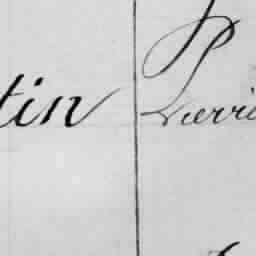 tin Pierri